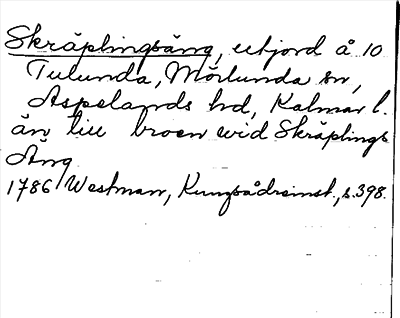 Skräplingsäng, utjord å 10
Tulunda, Mörlunda sn,
Aspelands hd, Kalmar l.
än till broen wid Skräplings
Äng
1786 Westman, Kungsådreinst., s. 398.